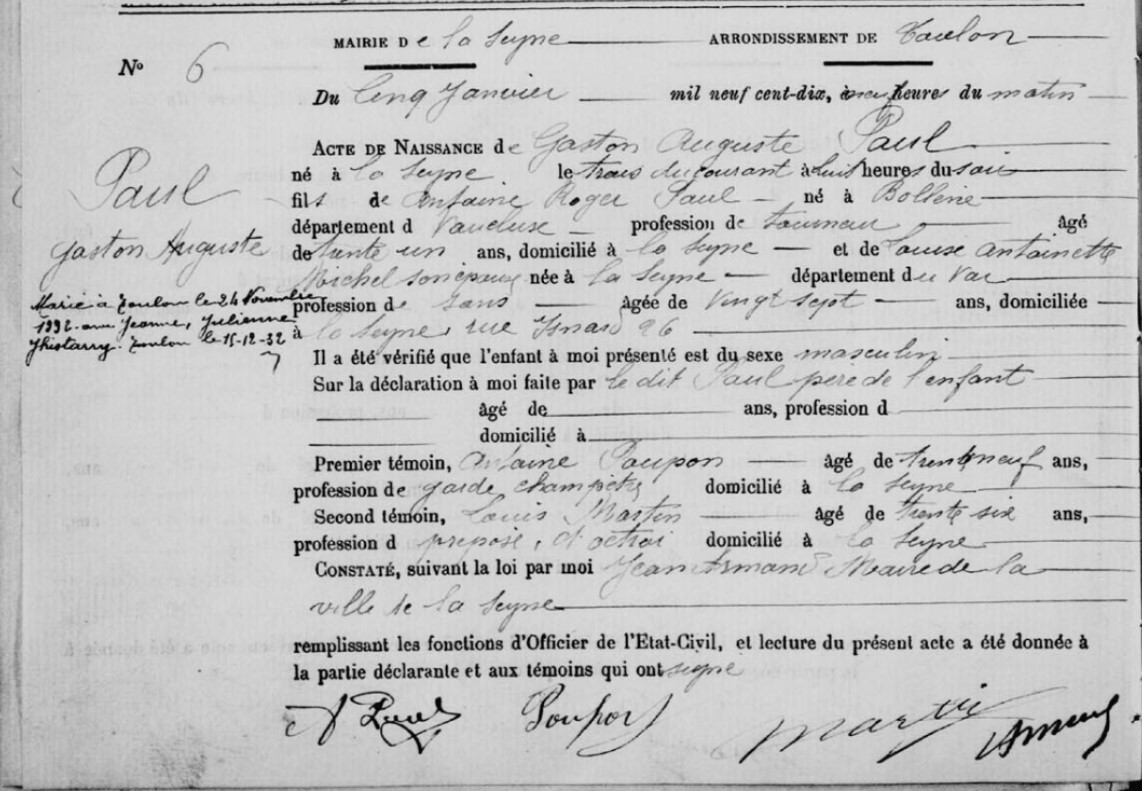 MAIRIE De la Seyne ARRONDISSEMENT DE Toulon
No 6
Du Cinq Janvier mil neuf cent-dix, à heures du matin
ACTE DE NAISSANCE de Gaston Auguste Paul
né à la Seyne le trois du courant à huit heures du soir
Paul
fils de Antoine Roger Paul né à Bollène
département d Vaucluse profession de tourneur âgé
Gaston Auguste
de trente un ans, domicilié à la Seyne et de Louise Antoinette
Michel son épouse née à la Seyne département du Var
Marié à Toulon le 24 Novembre
profession de sans âgée de vingt sept ans, domiciliée
1932 avec Jeanne, Julienne
à la Seyne, rue Isnard 26
Toulon le 15-12-32
Il a été vérifié que l'enfant à moi présenté est du sexe masculin
Sur la déclaration à moi faite par le dit Paul père de l'enfant
âgé de ans, profession d
domicilié à
Premier témoin, Antoine Poupon âgé de trente neuf ans,
profession de garde champetre domicilié à la Seyne
Second témoin, Louis Martin âgé de trente six ans,
profession d préposé d'octroi domicilié à la Seyne
CONSTATÉ, suivant la loi par moi Jean Armand Maire de la
ville de la Seyne
remplissant les fonctions d'Officier de l'Etat-Civil, et lecture du présent acte a été donnée à
la partie déclarante et aux témoins qui ont signé
A Paul Poupon Martin Armand